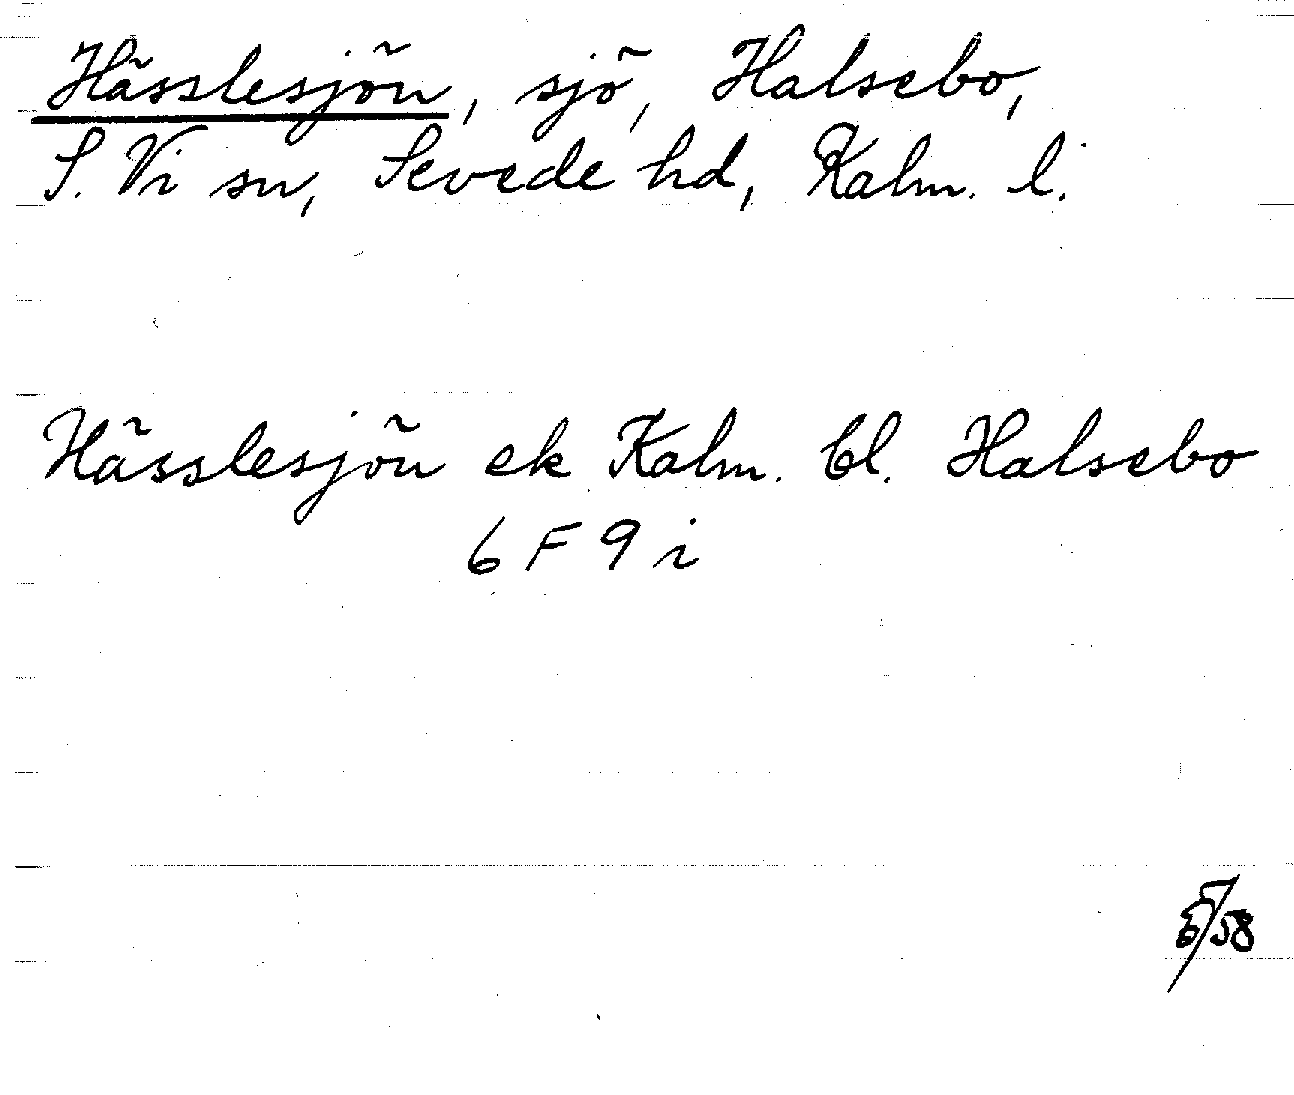 Hässlesjön, sjö, Halsebo,
S. Vi sn, Sevede hd, Kalm. l.
Hässlesjön ek Kalm. bl. Halsebo
6 F 9 i